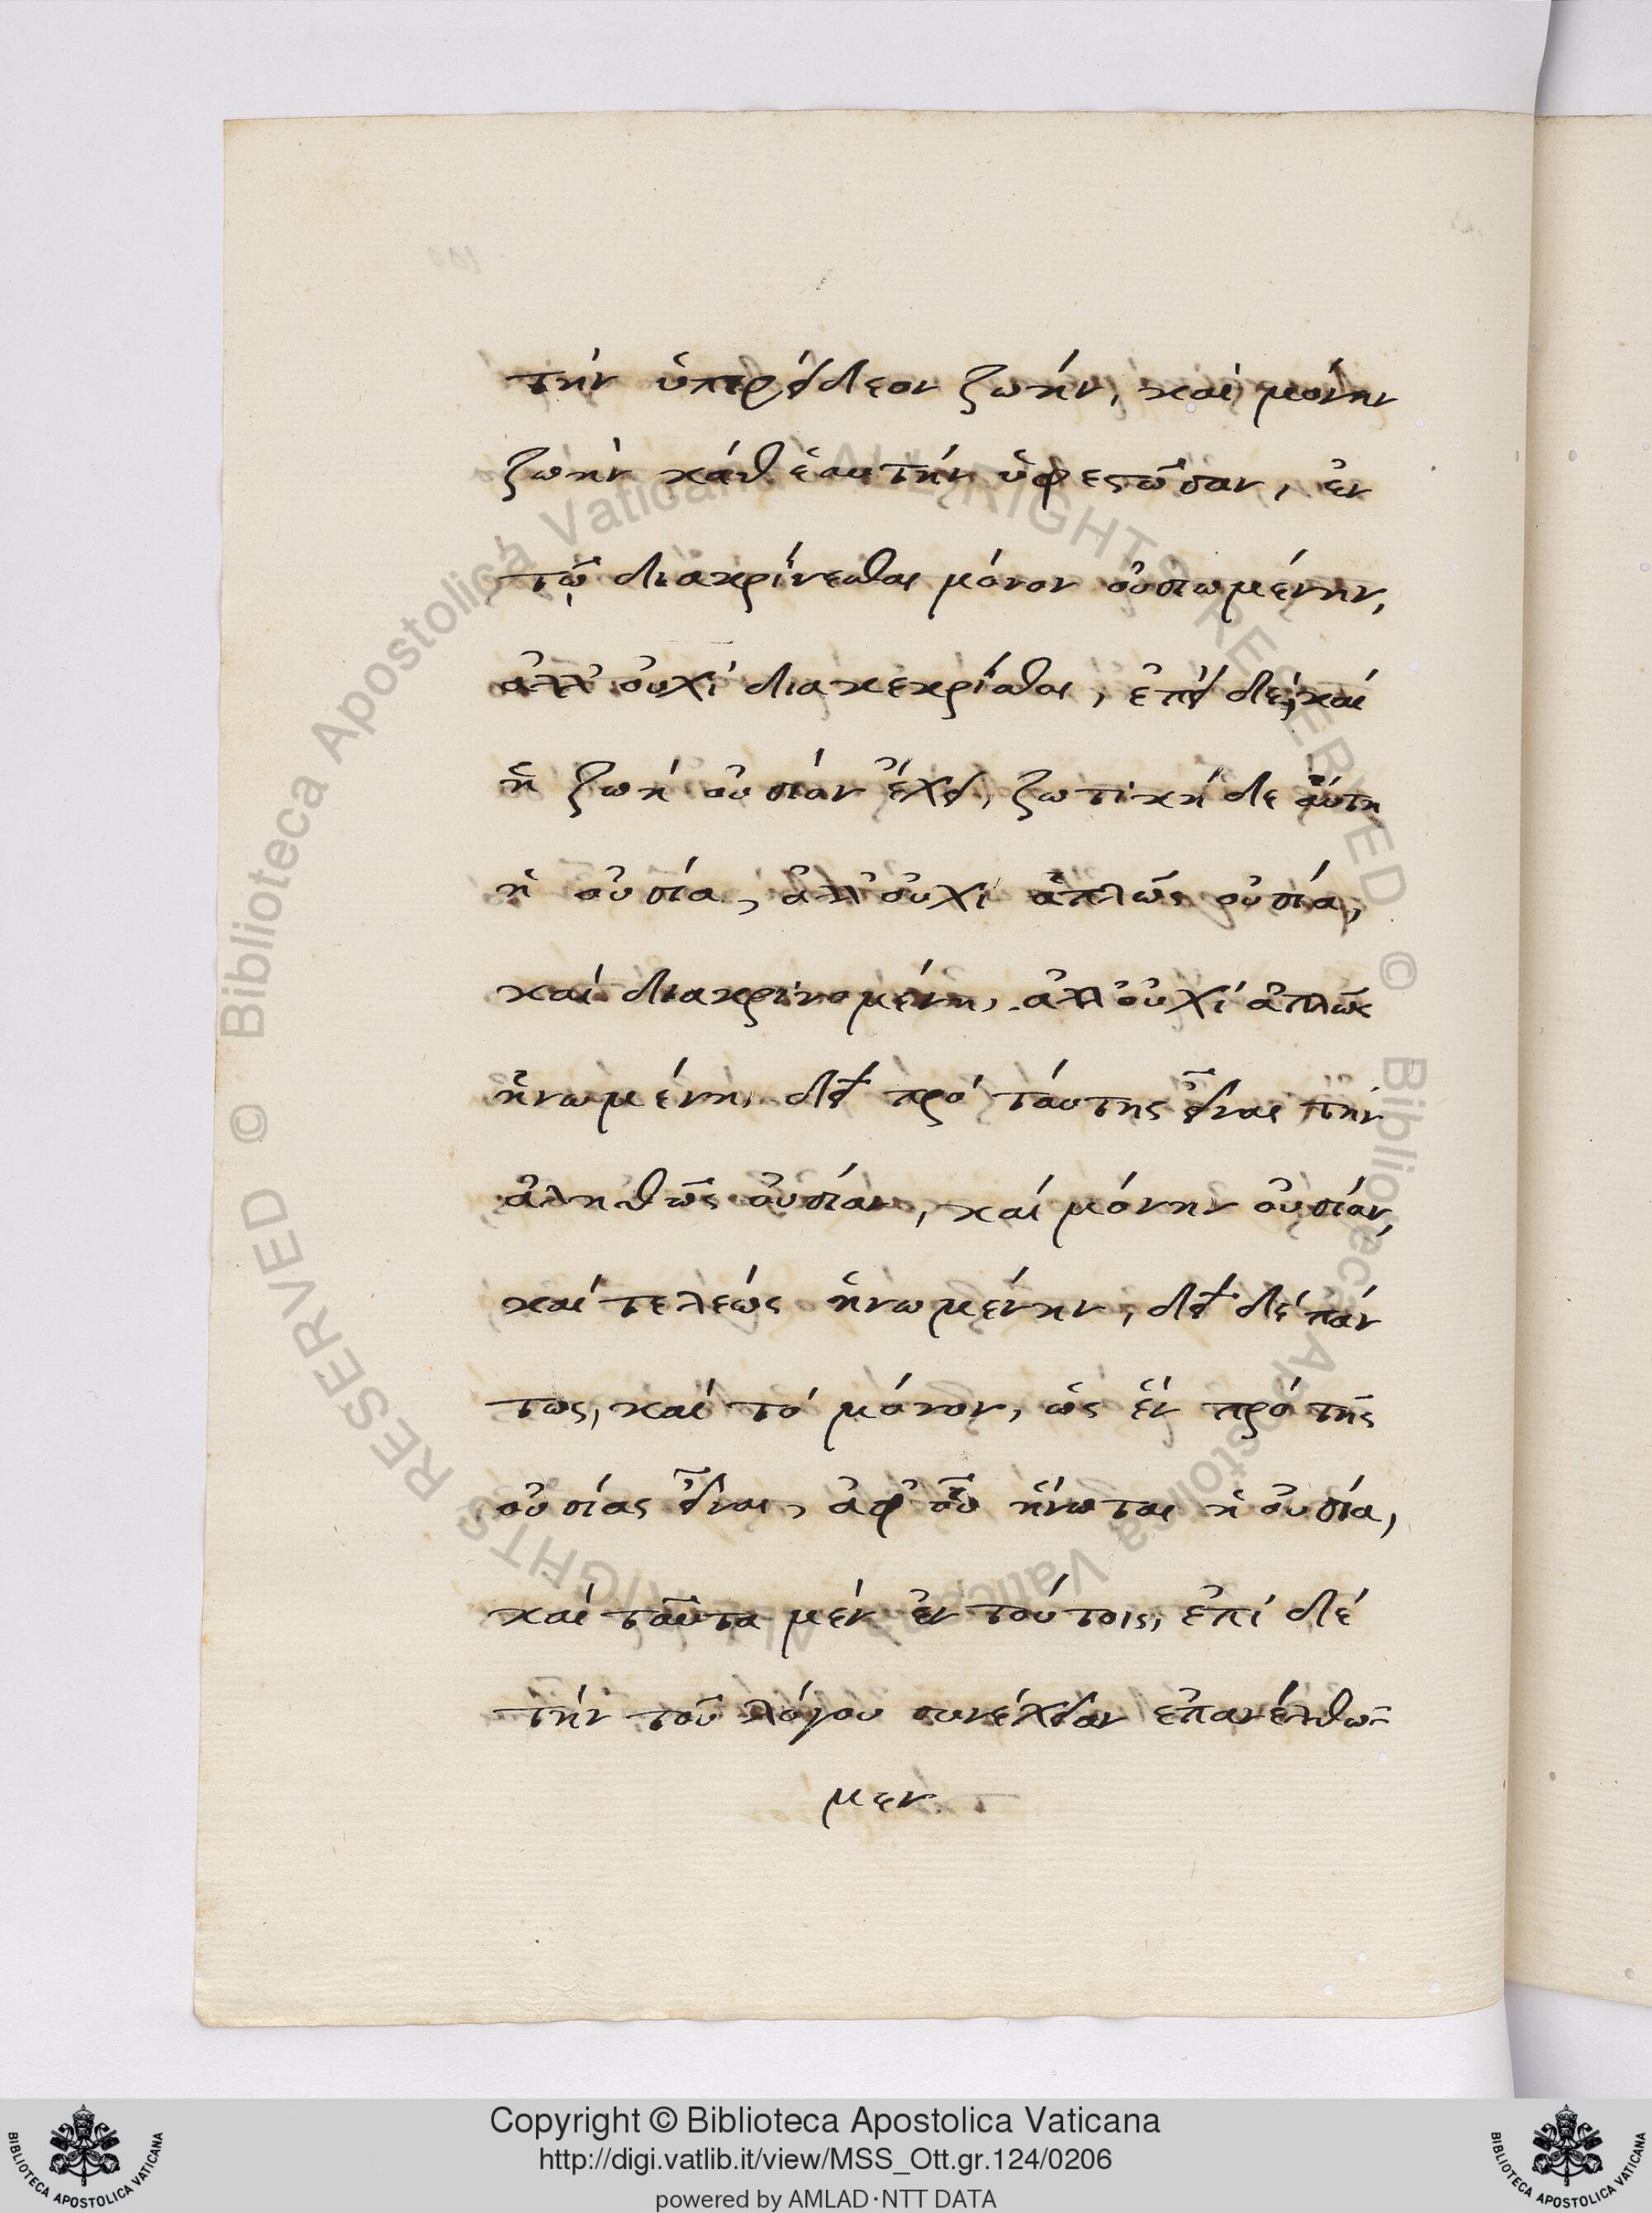 τὴν ὑπερείδεον ζωήν, καὶ μόνην
ζωὴν κάθ ἑαυτήν ὑφεστῶσαν, ἐν
τῷ διακρίνεσθαι μόνον οὐσιωμένην,
ἀλλ' οὐχί διακεκρίσθαι, ἐπεί δέ, καί
ἡ ζωή οὐσίαν ἔχει, ζωτική δε αὕτη
ἡ οὐσία, ἀλλ' οὐχί ἁπλῶς οὐσία,
καί διακρινομένη, ἀλλ' οὐχί ἁπλῶς
ἡνωμένη, δεῖ πρό ταύτης εἶναι τήν
ἀληθῶς οὐσίαν, καί μόνην οὐσίαν,
καί τελέως ἡνωμένην, δεῖ δέ πάν
τως, καί τό μόνον, ὡς ἕν πρό τῆς
οὐσίας εἶναι, ἀφ' οὗ ἥνωται ἡ οὐσία,
καί ταῦτα μέν ἐν τούτοις, ἐπί δέ
τήν τοῦ λόγου συνέχειαν ἐπανέλθω-
μεν
Copyright © Biblioteca Apostolica Vaticana
http://digi.vatlib.it/view/MSS_Ott.gr.124/0206
powered by AMLAD·NTT DATA
BIBLIOTECA APOSTOLICA VATICANA
BIBLIOTECA APOSTOLICA VATICANA
© Biblioteca Apostolica Vaticana ALL RIGHTS RESERVED © Biblioteca Apostolica Vaticana ALL RIGHTS RESERVED